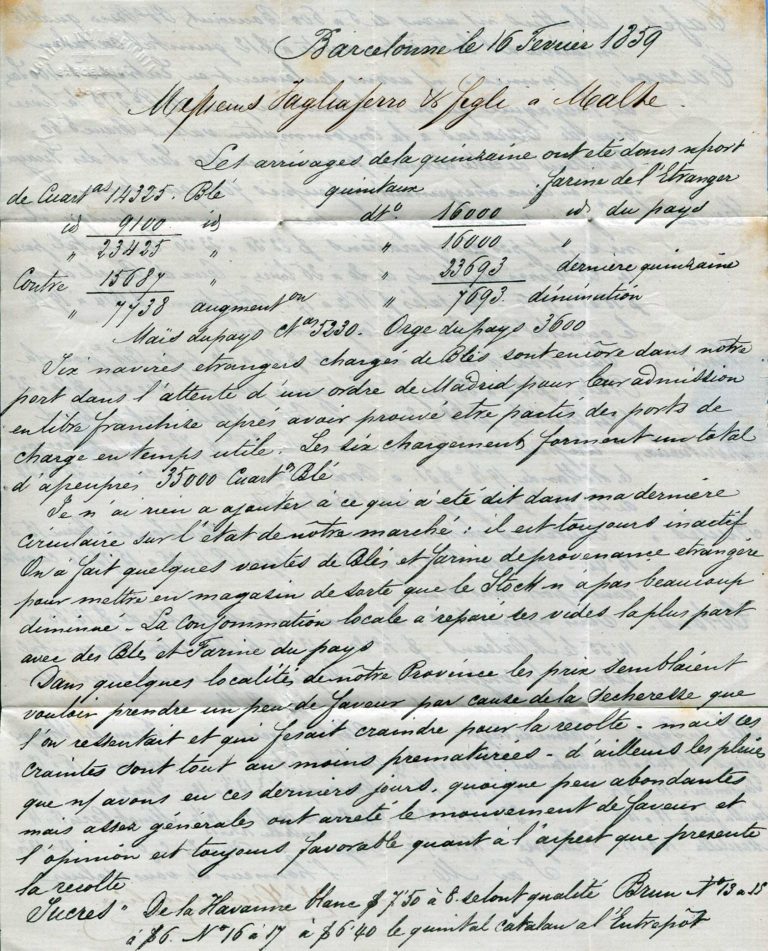 Barcelonne le 16 Fevrier 1859
Messieurs Tagliaferro & figli à Malte.
Les arrivages de la quinzaine ont eté dans n/port
de Cuart.as 14325. Blé quintaux farine de l'Etranger
id 9100 id dt.o 16000 id du pays
" 23425 " 16000 "
Contre 15687 " " 23693 dernière quinzaine
" 7738 augment.on " 7693 diminution
Maïs du pays C.as 5230. Orge du pays 3600
Six navires etrangers chargés de Blés sont encôre dans nôtre
port dans l'attente d'un ordre de Madrid pour leur admission
en libre franchise aprés avoir prouvé etre partis des ports de
charge en temps utile. Les six chargements forment un total
d'apeuprés 35000 Cuart.s Blé
Je n'ai rien a ajouter à ce qui a été dit dans ma derniére
circulaire sur l'état de nôtre marché : il est toujours inactif
On a fait quelques ventes de Blés et farine de provenance etrangère
pour mettre en magasin de sorte que le Stock n'a pas beaucoup
diminué - La Consommation locale a réparé ses vides la plus part
avec des Blé et Farine du pays
Dans quelques localités de nôtre Province les prix semblaient
vouloir prendre un peu de faveur par cause de la Secheresse que
l'on ressentait et qui fesait craindre pour la recolte - mais ces
craintes sont tout au moins prematurées - d'ailleurs les pluies
que n/ avons eu ces derniers jours, quoique peu abondantes
mais assez générales ont arreté le mouvement de faveur et
l'opinion est toujours favorable quant à l'aspect que presente
la recolte
Sucres " De la Havanne blanc $ 7.50 à 8. selont qualité Brun N.o 13 a 15
à $ 6. N.o 16 à 17 à $ 6.40 le quintal catalan a l'Entrepôt